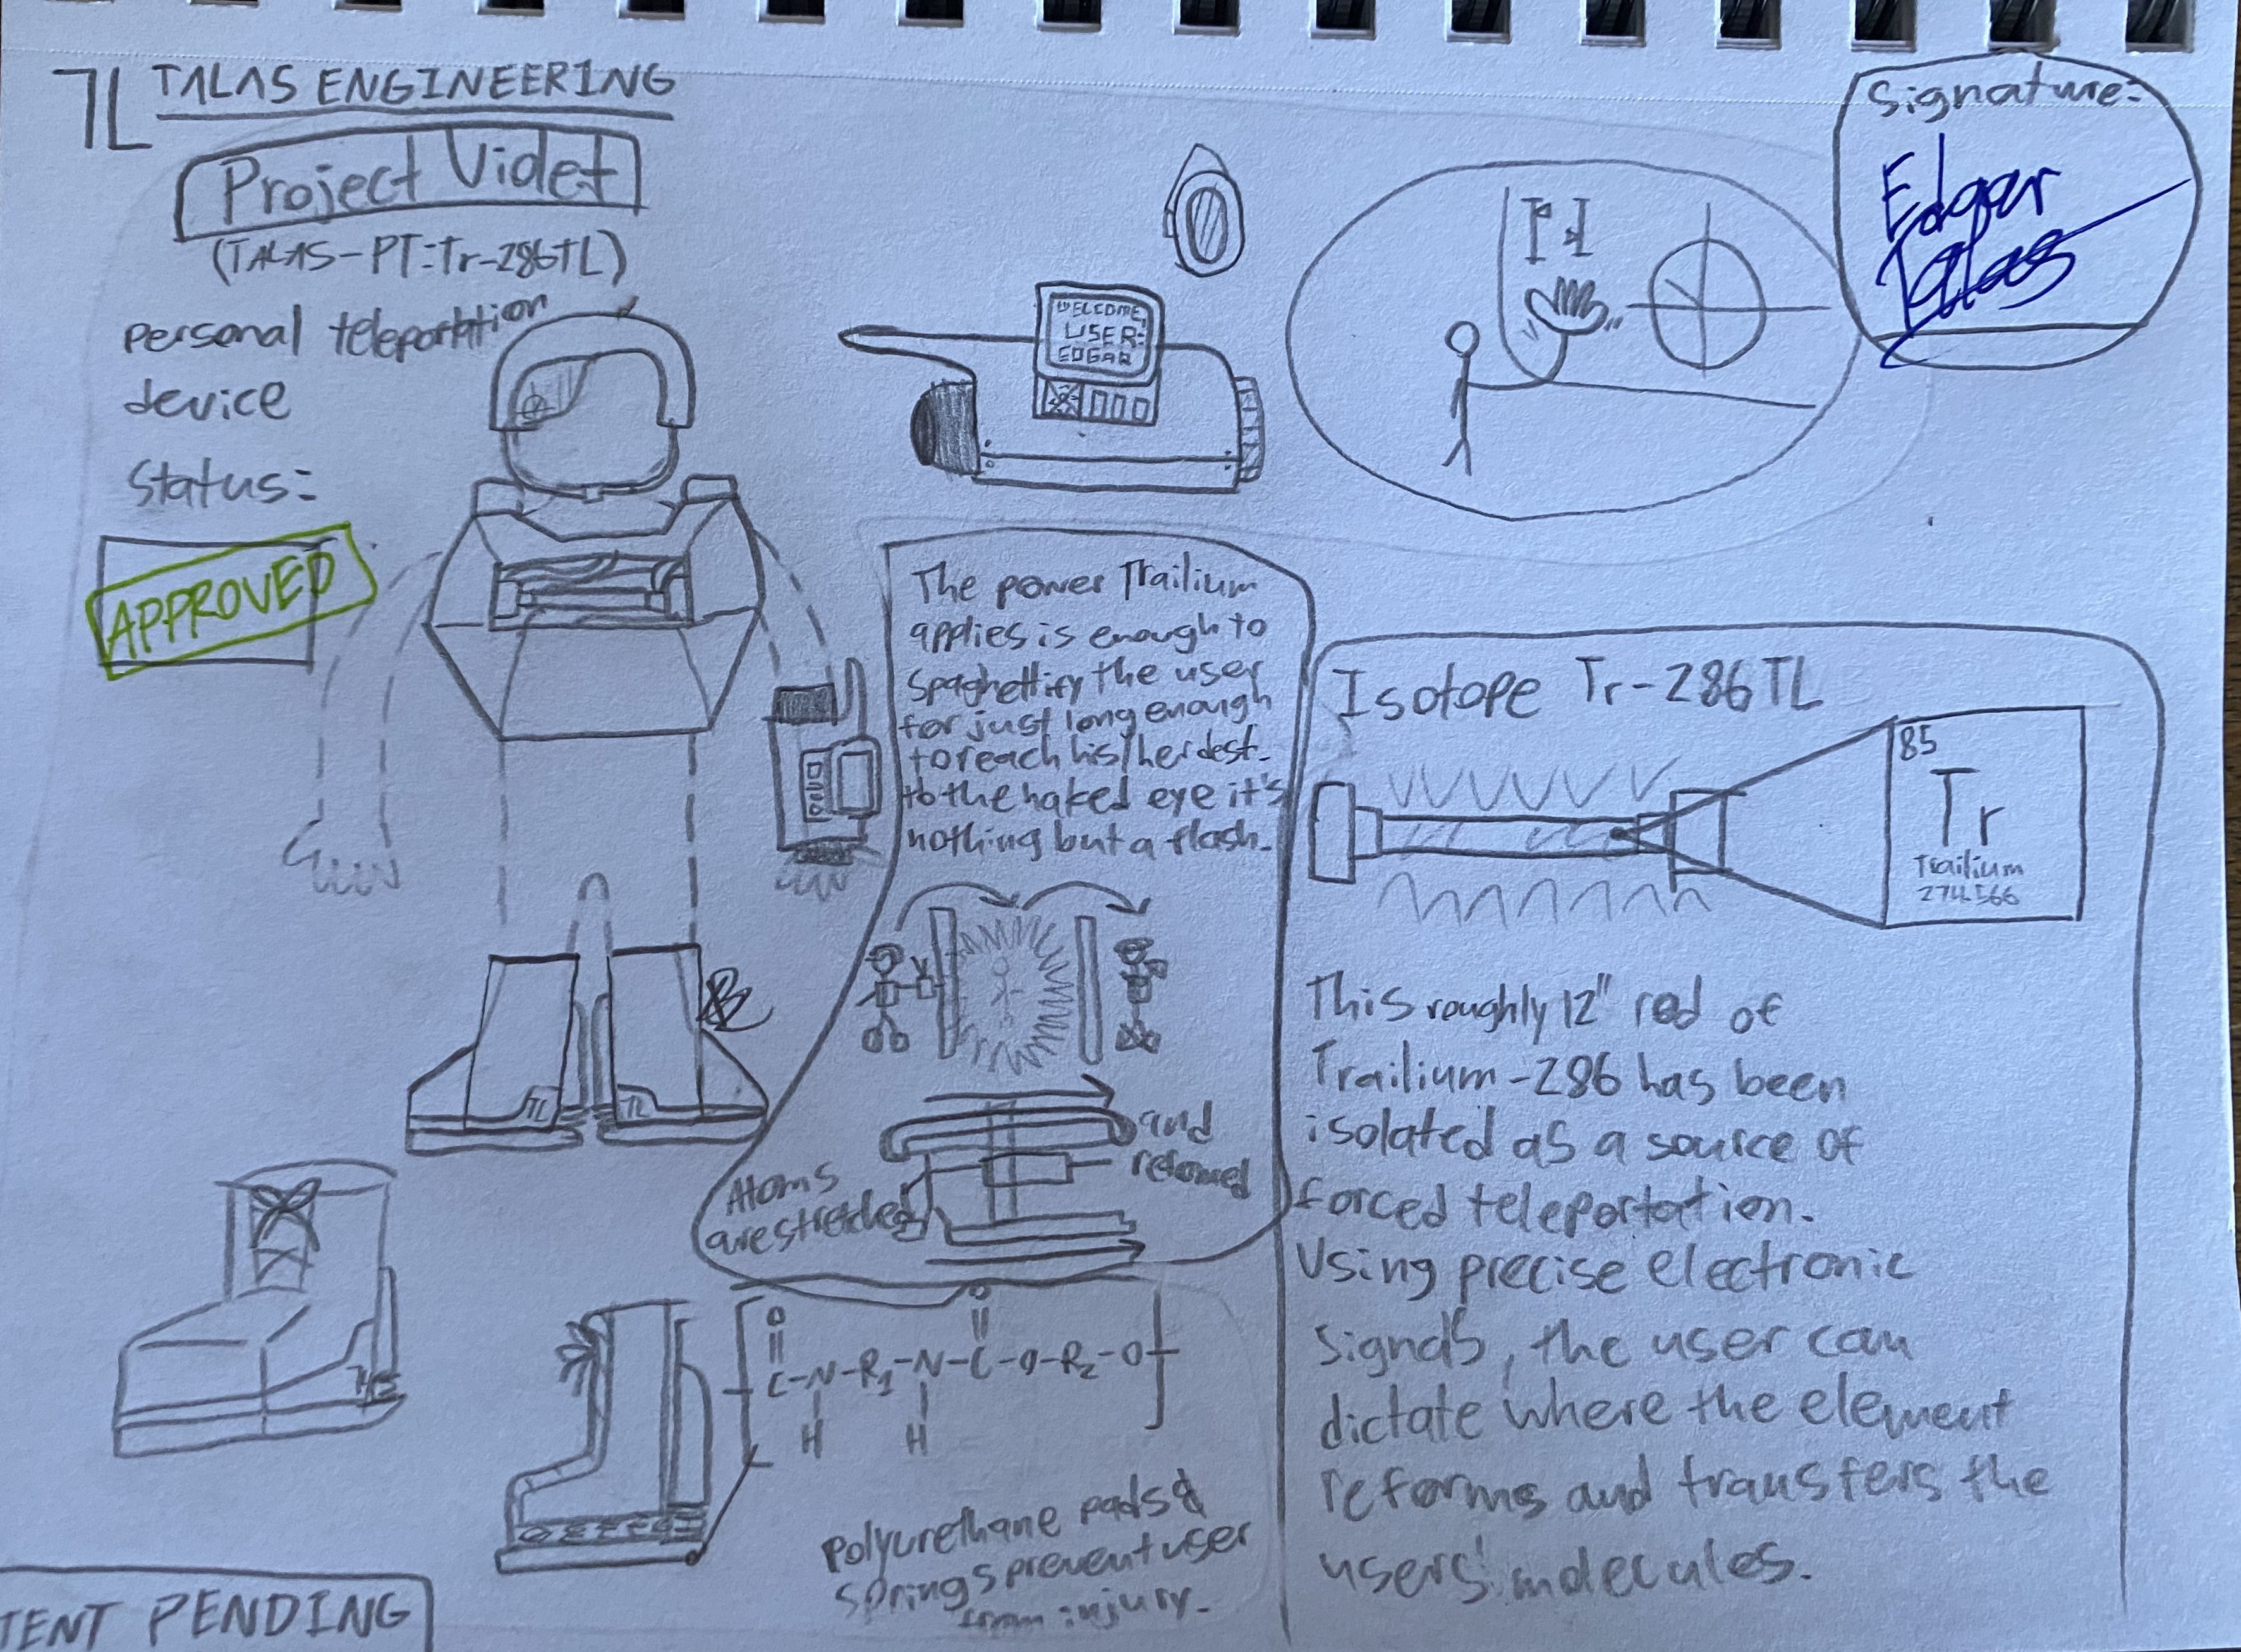 TL TALAS ENGINEERING
Project Violet
(TALAS-PT:Tr-286TL)
personal teleportation
device
Status:
APPROVED
WELCOME,
USER:
EDGAR
Signature:
Edgar
Talas
The power Trailium
applies is enough to
spaghettify the user
for just long enough
to reach his/her dest.
to the naked eye it's
nothing but a flash.
Atoms
are stretched
and
reformed
Isotope Tr-286TL
85
Tr
Trailium
274.566
This roughly 12" rod of
Trailium-286 has been
isolated as a source of
forced teleportation.
Using precise electronic
signals, the user can
dictate where the element
reforms and transfers the
users' molecules.
TL
TL
O
O
C-N-R1-N-C-O-R2-O
H
H
polyurethane pads &
springs prevent user
from injury.
TENT PENDING